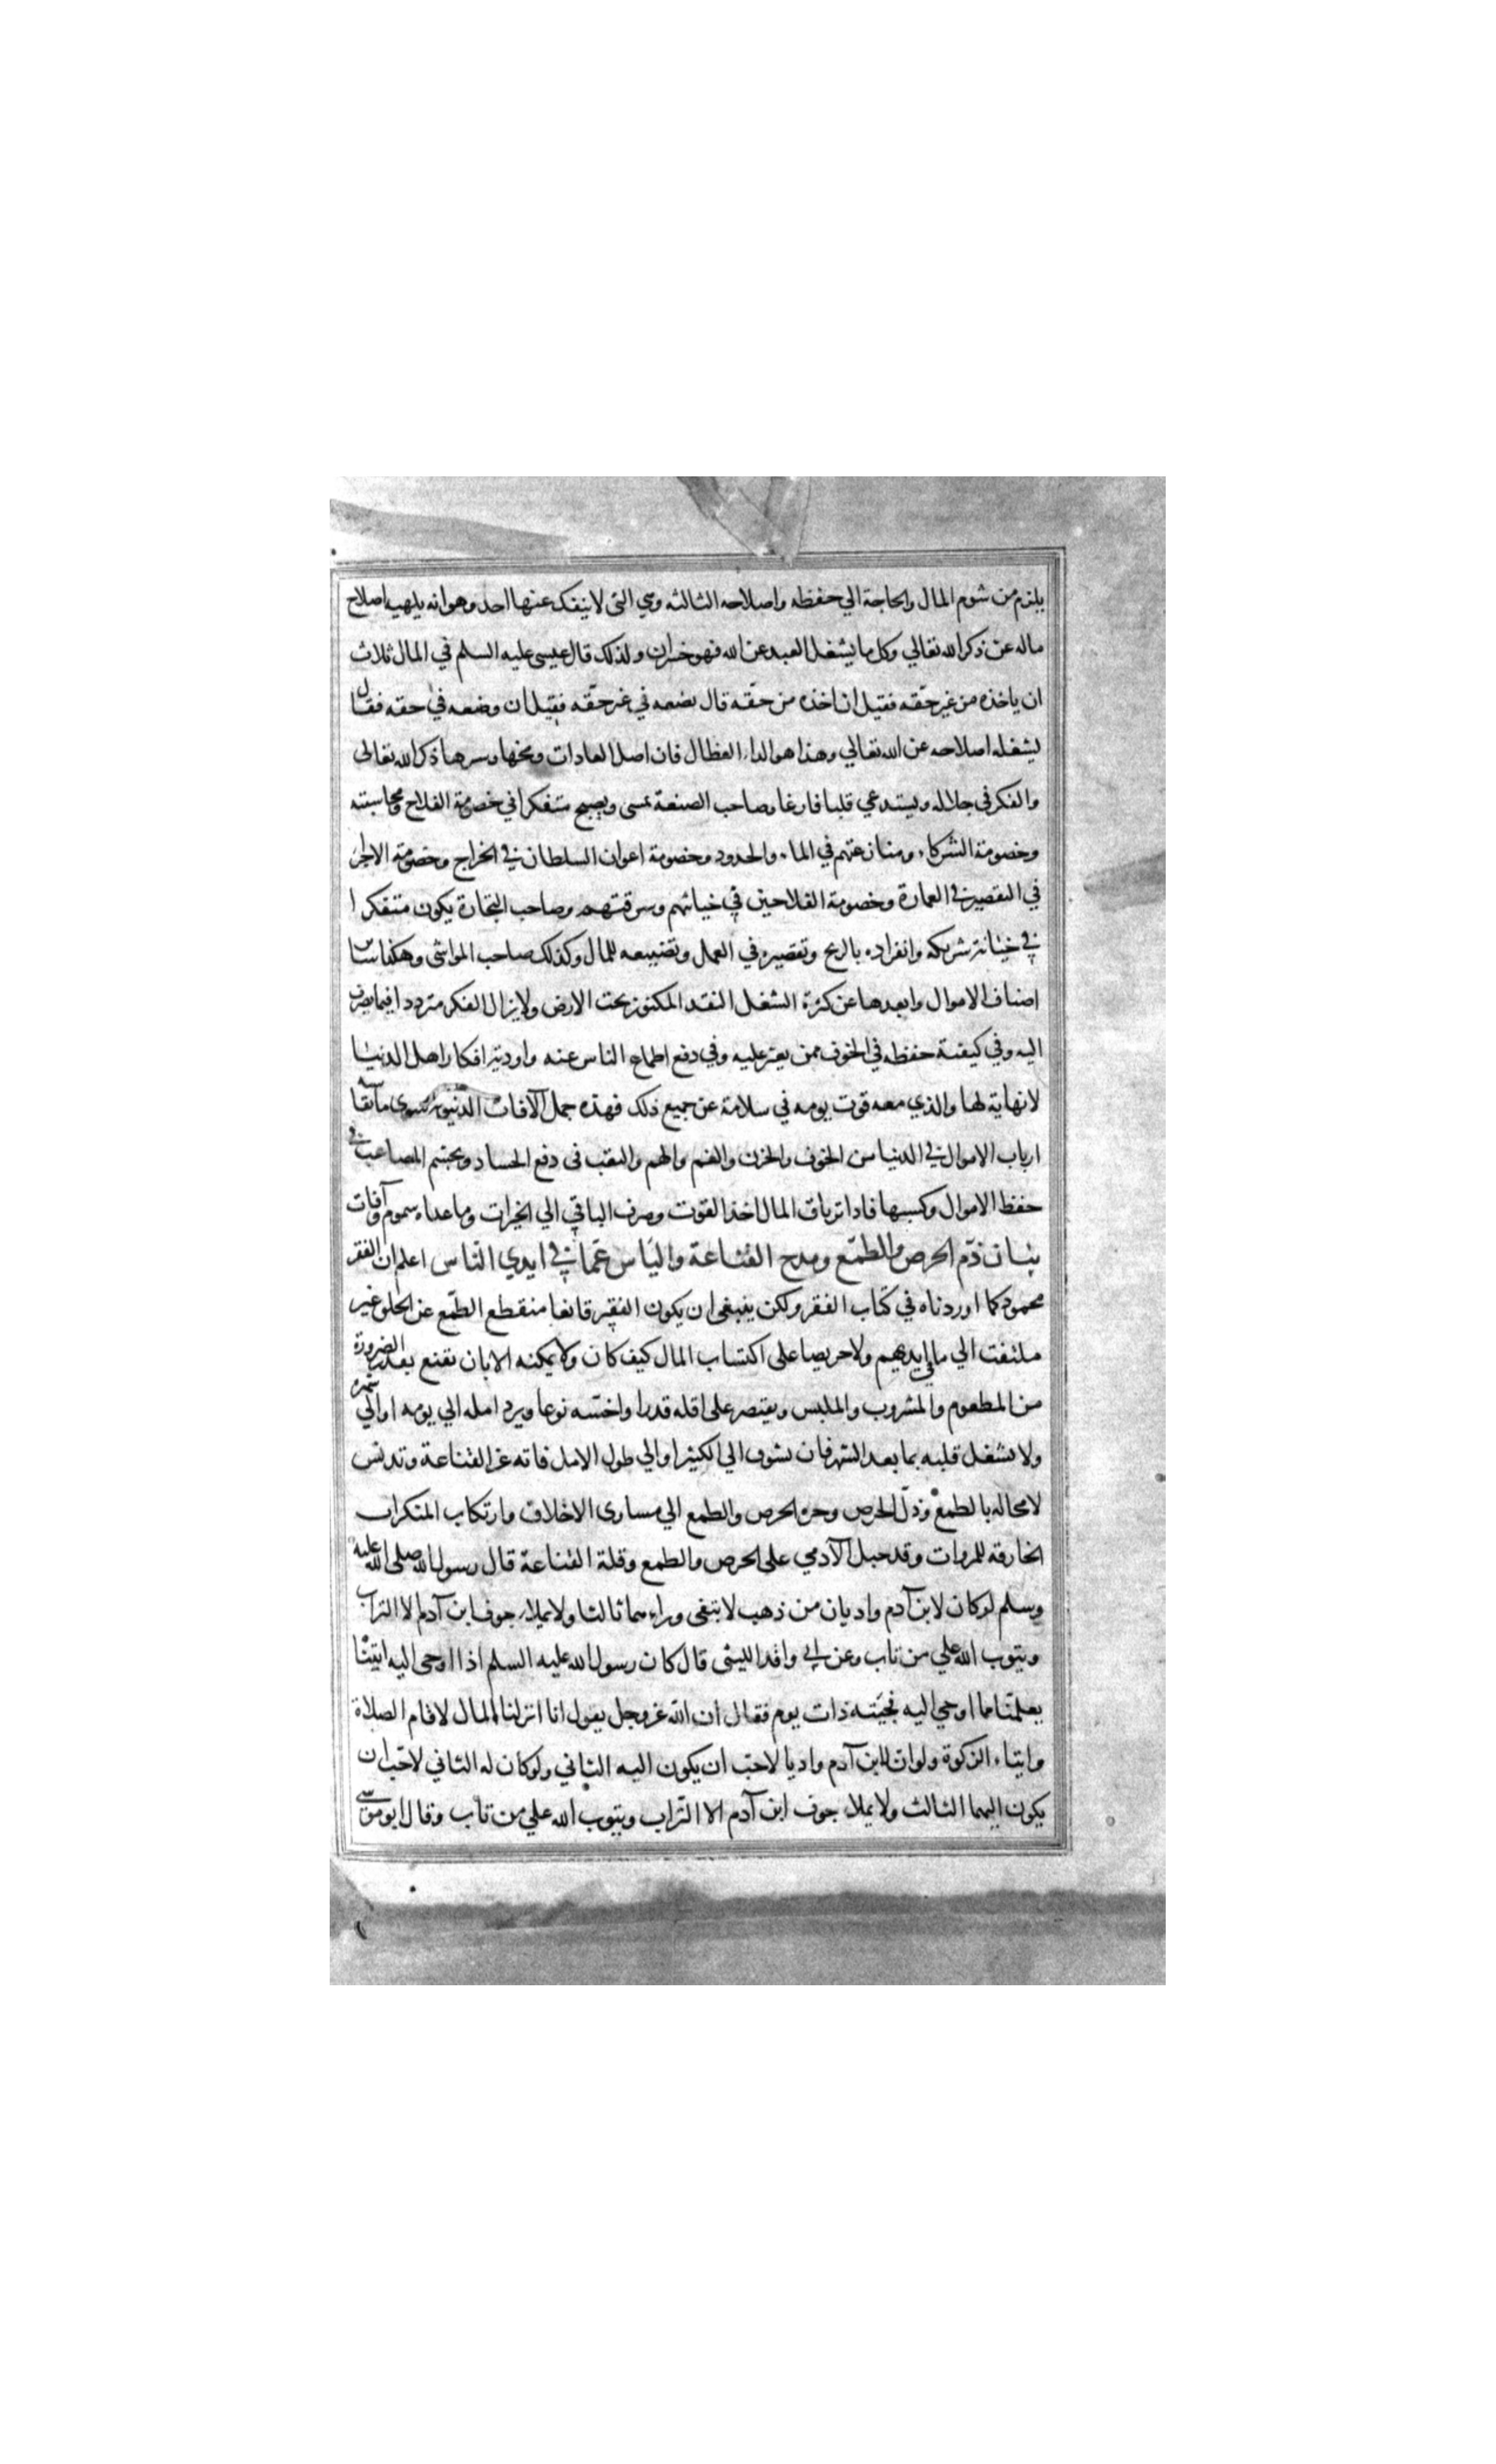 يلزم من شوم المال والحاجة الي حفظه واصلاحه الثالثه وهي التي لا ينفك عنها احد وهو انه يلهيه اصلاح
ماله عن ذكر الله تعالي وكل ما يشغل العبد عن الله فهو خسران ولذلك قال عيسى عليه السلم في المال ثلاث
ان ياخذه من غير حقّه فقيل ان اخذه من حقّه قال يضعه في غير حقّه فقيل ان وضعه في حقه فقال
يشغله اصلاحه عن الله تعالي وهذا هو الداء العظال فان اصل العادات ومخها وسرها ذكر الله تعالى
والفكر في جلاله ويستدعي قلبا فارغا وصاحب الصنعة يمسى ويصبح متفكرا في خصومة الفلاح ومحاسبته
وخصومة الشركاء ومنازعتهم في الماء والحدود وخصومة اعوان السلطان في الخراج وخصومة الاجراء
في التقصير في العمارة وخصومة الفلاحين في خيانتهم وسرقتهم وصاحب التجارة يكون متفكرا
في خيانة شريكه وانفراده بالربح وتقصيره في العمل وتضييعه للمال وكذلك صاحب المواشي وهكذا سائر
اصناف الاموال وابعدها عن كثرة الشغل النقد المكنوز تحت الارض ولا يزال الفكر مترددا فيما يصرف
اليه وفي كيفية حفظه في الخوف ممن يعثر عليه وفي دفع اطماع الناس عنه واودية افكار اهل الدنيا
لا نهاية لها والذي معه قوت يومه في سلامة عن جميع ذلك فهذه جمل الآفات الدنيوية سوى ما يقاسيه
ارباب الاموال في الدنيا من الخوف والحزن والغم والهم والتعب في دفع الحساد وتجشم المصاعب في
حفظ الاموال وكسبها فاذا ترياق المال اخذ القوت وصرف الباقي الي الخيرات وما عداه سموم وآفات
بيان ذمّ الحرص والطمّع ومدح القناعة والياس عمّا في ايدي النّاس اعلم ان الفقر
محمود كما اوردناه في كتاب الفقر ولكن ينبغي ان يكون الفقير قانعا منقطع الطمّع عن الخلق غير
ملتفت الي ما في ايديهم ولا حريصا على اكتساب المال كيف كان ولا يمكنه الا بان يقنع بقدر الضرورة
من المطعوم والمشروب والملبس ويقتصر على اقله قدرا واخسّه نوعا ويرد امله الي يومه او الي شهره
ولا يشغل قلبه بما بعد الشهر فان تشوف الي الكثير او الي طول الامل فاته عز القناعة وتدنس
لا محاله بالطمع وذلّ الحرص وجره الحرص والطمع الي مساوى الاخلاق وارتكاب المنكرات
الخارقه للمروات وقد جبل الآدمي على الحرص والطمع وقلة القناعة قال رسول الله صلى الله عليه
وسلم لو كان لابن آدم واديان من ذهب لابتغى وراءهما ثالثا ولا يملاء جوف ابن آدم الا التراب
ويتوب الله علي من تاب وعن ابي واقد الليثى قال كان رسول الله عليه السلم اذا اوحى اليه اتيناه
يعلمنا مما اوحي اليه فجئته ذات يوم فقال ان الله عز وجل يقول انا انزلنا المال لاقام الصلاة
وايتاء الزكوة ولو ان لابن آدم واديا لاحب ان يكون اليه الثاني ولو كان له الثاني لاحب ان
يكون اليهما الثالث ولا يملاء جوف ابن آدم الا التراب ويتوب الله علي من تاب وقال ابو موسى